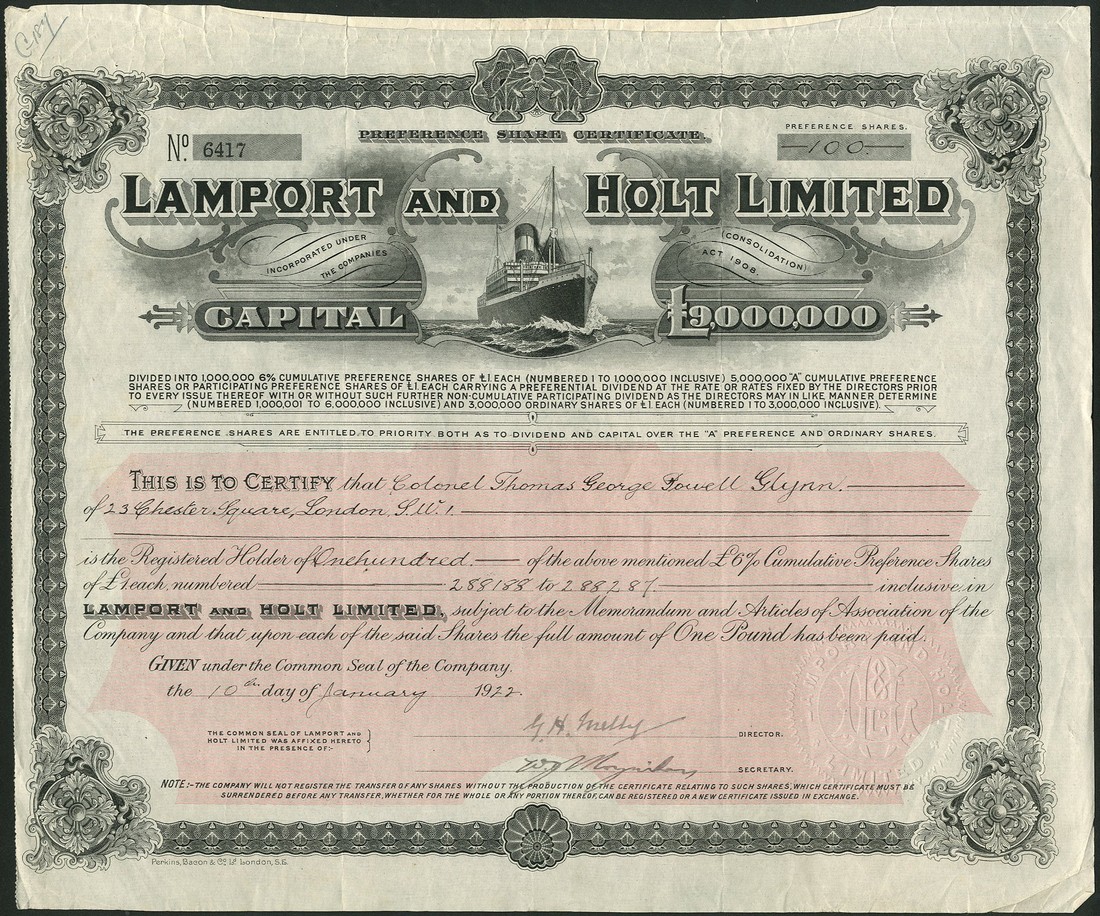 C.187
PREFERENCE SHARE CERTIFICATE.
PREFERENCE SHARES.
No. 6417
—100—
LAMPORT AND HOLT LIMITED
INCORPORATED UNDER
THE COMPANIES
(CONSOLIDATION)
ACT 1908.
CAPITAL £9,000,000
DIVIDED INTO 1,000,000 6% CUMULATIVE PREFERENCE SHARES OF £1 EACH (NUMBERED 1 TO 1,000,000 INCLUSIVE) 5,000,000 "A" CUMULATIVE PREFERENCE
SHARES OR PARTICIPATING PREFERENCE SHARES OF £1 EACH CARRYING A PREFERENTIAL DIVIDEND AT THE RATE OR RATES FIXED BY THE DIRECTORS PRIOR
TO EVERY ISSUE THEREOF WITH OR WITHOUT SUCH FURTHER NON-CUMULATIVE PARTICIPATING DIVIDEND AS THE DIRECTORS MAY IN LIKE MANNER DETERMINE
(NUMBERED 1,000,001 TO 6,000,000 INCLUSIVE) AND 3,000,000 ORDINARY SHARES OF £1 EACH (NUMBERED 1 TO 3,000,000 INCLUSIVE).
THE PREFERENCE SHARES ARE ENTITLED TO PRIORITY BOTH AS TO DIVIDEND AND CAPITAL OVER THE "A" PREFERENCE AND ORDINARY SHARES.
THIS IS TO CERTIFY that Colonel Thomas George Powell Glynn.
of 23 Chester Square, London, S.W.1.
is the Registered Holder of One hundred. of the above mentioned £6% Cumulative Preference Shares
of £1 each, numbered 288188 to 288287. inclusive in
LAMPORT AND HOLT LIMITED, subject to the Memorandum and Articles of Association of the
Company and that upon each of the said Shares the full amount of One Pound has been paid.
GIVEN under the Common Seal of the Company.
the 10th day of January 1922.
THE COMMON SEAL OF LAMPORT AND
HOLT LIMITED WAS AFFIXED HERETO
IN THE PRESENCE OF:-
G. H. Melly DIRECTOR.
SECRETARY.
LAMPORT AND HOLT LIMITED
NOTE:-THE COMPANY WILL NOT REGISTER THE TRANSFER OF ANY SHARES WITHOUT THE PRODUCTION OF THE CERTIFICATE RELATING TO SUCH SHARES, WHICH CERTIFICATE MUST BE
SURRENDERED BEFORE ANY TRANSFER, WHETHER FOR THE WHOLE OR ANY PORTION THEREOF, CAN BE REGISTERED OR A NEW CERTIFICATE ISSUED IN EXCHANGE.
Perkins, Bacon & Co. Ld London, S.E.